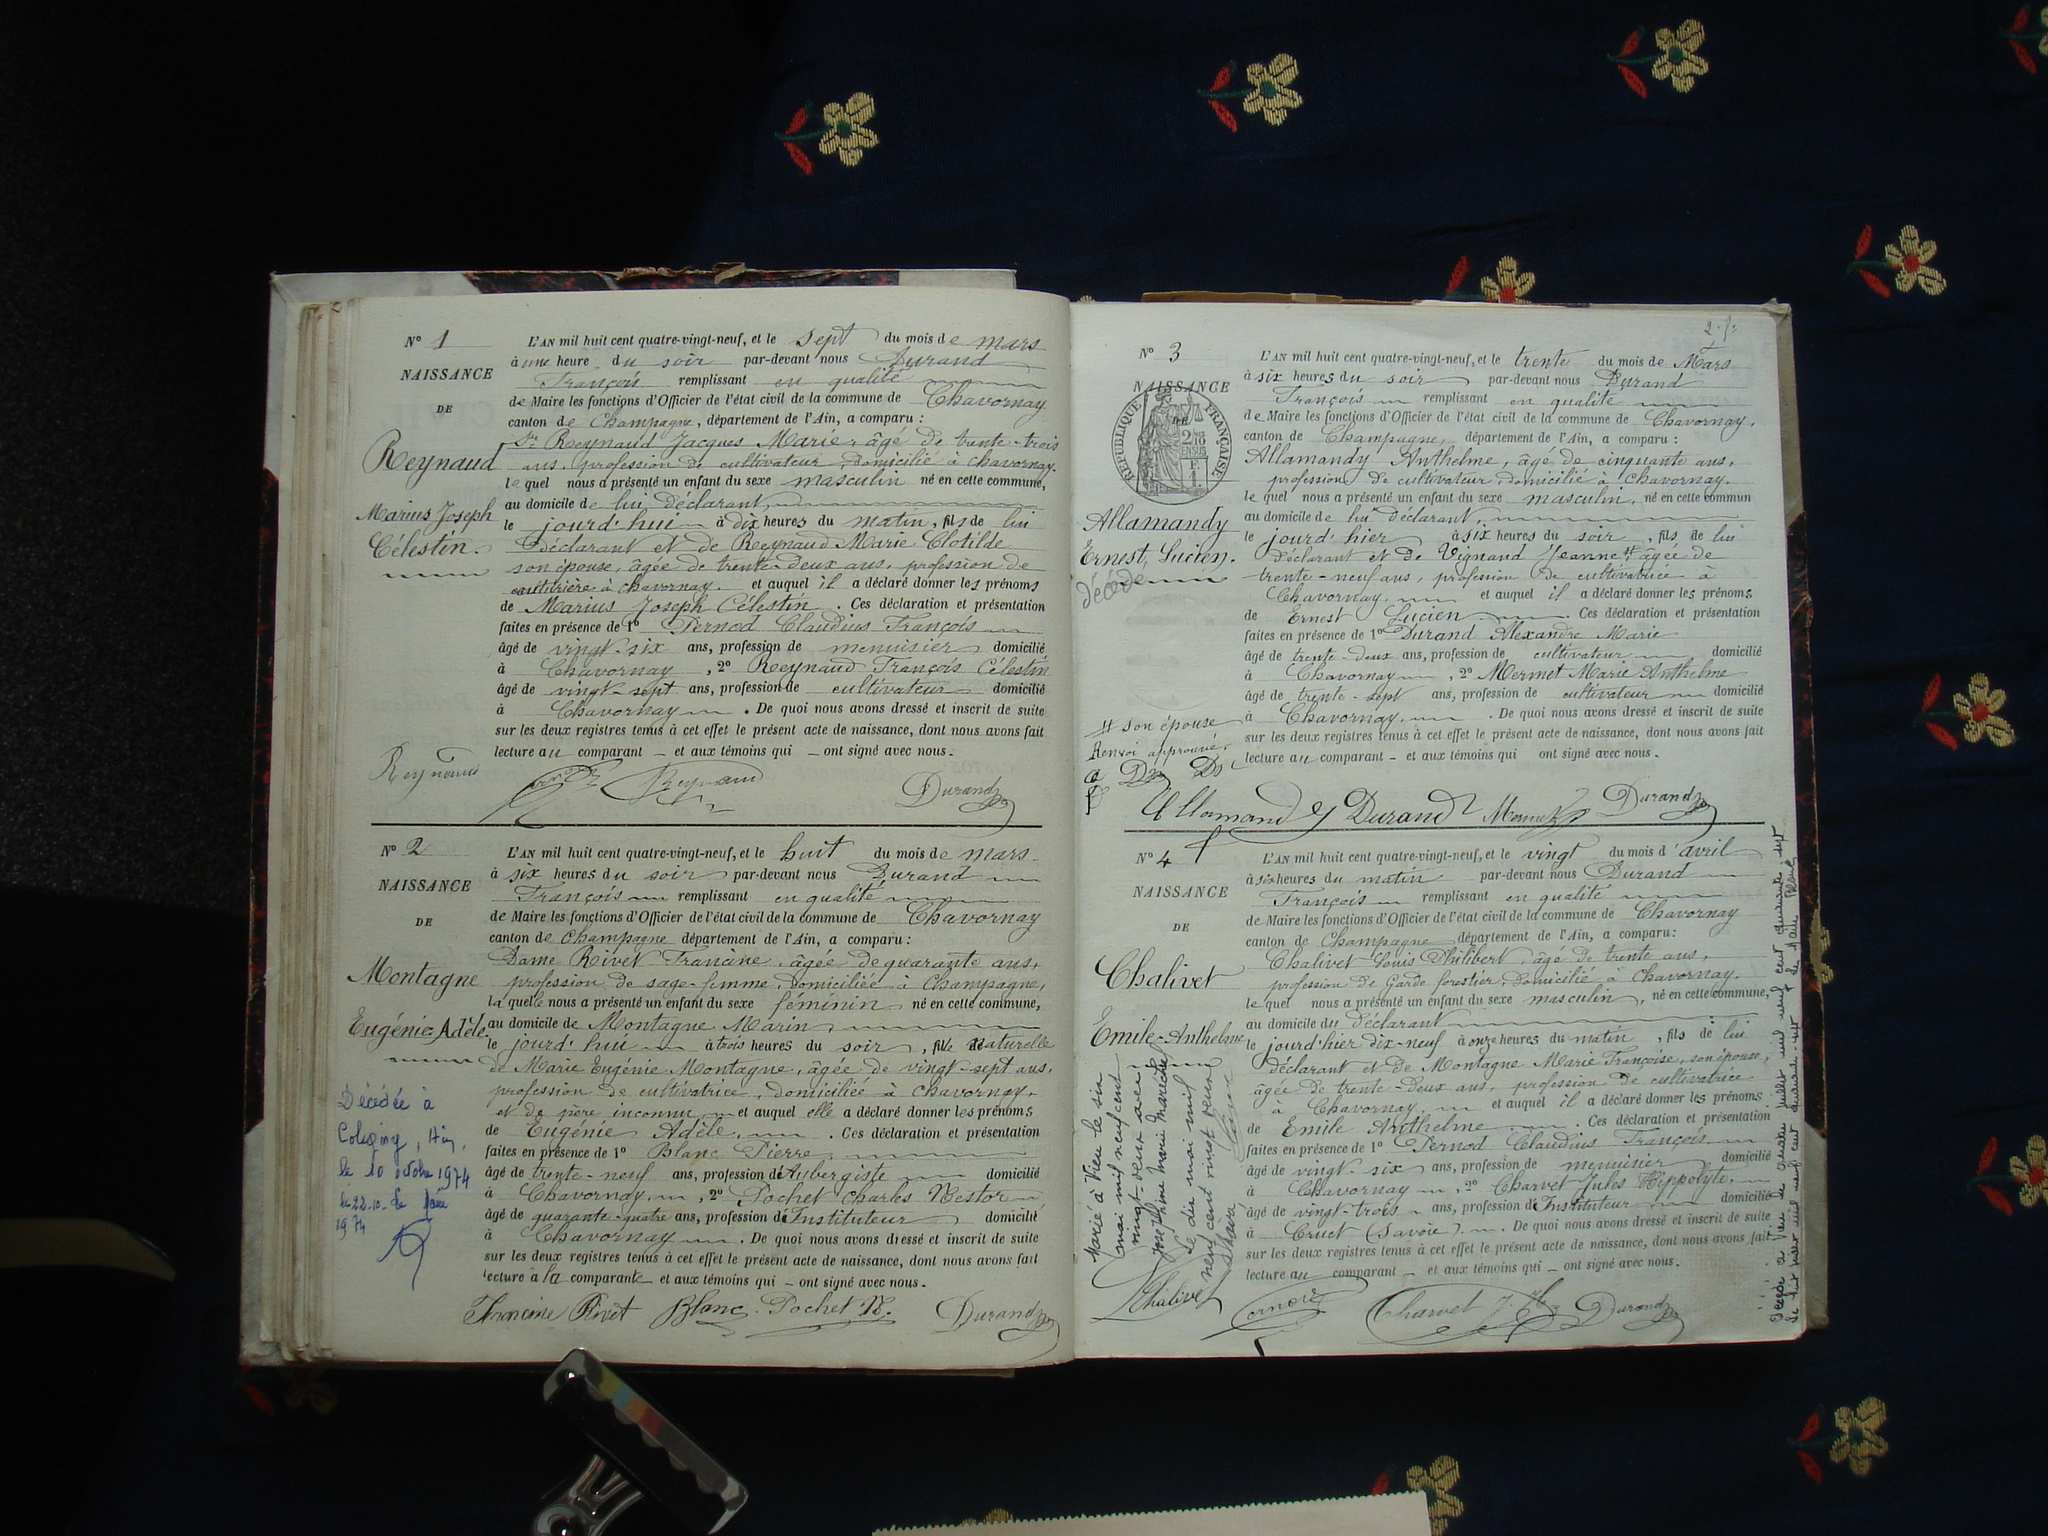 N° 1
NAISSANCE
DE
Reynaud
Marius Joseph
Célestin.
L'AN mil huit cent quatre-vingt-neuf, et le sept du mois de mars
à une heure du soir par-devant nous Durand
François remplissant en qualité
de Maire les fonctions d'Officier de l'état civil de la commune de Chavornay
canton de Champagne, département de l'Ain, a comparu :
Sr Reynaud Jacques Marie, âgé de trente-trois
ans, profession de cultivateur, domicilié à Chavornay.
lequel nous a présenté un enfant du sexe masculin né en cette commune,
au domicile de lui déclarant,
le jourd'hui à dix heures du matin, fils de lui
déclarant et de Reynaud Marie Clotilde
son épouse, âgée de trente-deux ans, profession de
à Chavornay. et auquel il a déclaré donner les prénoms
de Marius Joseph Célestin. Ces déclaration et présentation
faites en présence de 1° Pernod Claudius François
âgé de vingt-six ans, profession de menuisier domicilié
à Chavornay, 2° Reynaud François Célestin
âgé de vingt-sept ans, profession de cultivateur domicilié
à Chavornay. De quoi nous avons dressé et inscrit de suite
sur les deux registres tenus à cet effet le présent acte de naissance, dont nous avons fait
lecture au comparant et aux témoins qui ont signé avec nous.
Reynaud Reynaud Durand
N° 2
NAISSANCE
DE
Montagne
Eugénie-Adèle
Décédée à
Coligny, Ain,
le 10 octobre 1974
le 22.10. Le Maire
1974
L'AN mil huit cent quatre-vingt-neuf, et le huit du mois de mars
à six heures du soir par-devant nous Durand
François remplissant en qualité
de Maire les fonctions d'Officier de l'état civil de la commune de Chavornay
canton de Champagne département de l'Ain, a comparu :
Dame Rivet Francine, âgée de quarante ans,
profession de sage-femme, domiciliée à Champagne,
laquelle nous a présenté un enfant du sexe féminin né en cette commune,
au domicile de Montagne Marin
le jourd'hui à trois heures du soir, fille naturelle
de Marie Eugénie Montagne, âgée de vingt-sept ans,
profession de cultivatrice, domiciliée à Chavornay,
et de père inconnu et auquel elle a déclaré donner les prénoms
de Eugénie Adèle. Ces déclaration et présentation
faites en présence de 1° Blanc Pierre,
âgé de trente-neuf ans, profession d'Aubergiste domicilié
à Chavornay, 2° Pochet Charles Nestor
âgé de quarante-quatre ans, profession d'Instituteur domicilié
à Chavornay. De quoi nous avons dressé et inscrit de suite
sur les deux registres tenus à cet effet le présent acte de naissance, dont nous avons fait
lecture à la comparante et aux témoins qui ont signé avec nous.
Francine Rivet Blanc. Pochet N. Durand
N° 3
NAISSANCE
DE
RÉPUBLIQUE FRANÇAISE
Allamandy
Ernest, Lucien.
décédé
# son épouse
Renvoi approuvé.
L'AN mil huit cent quatre-vingt-neuf, et le trente du mois de Mars
à six heures du soir par-devant nous Durand
François remplissant en qualité
de Maire les fonctions d'Officier de l'état civil de la commune de Chavornay,
canton de Champagne, département de l'Ain, a comparu :
Allamandy Anthelme, âgé de cinquante ans,
profession de cultivateur, domicilié à Chavornay.
lequel nous a présenté un enfant du sexe masculin, né en cette commun
au domicile de lui déclarant,
le jourd'hier à six heures du soir, fils de lui
déclarant et de Vignand Jeanne # âgée de
trente-neuf ans, profession de cultivatrice à
Chavornay. et auquel il a déclaré donner les prénoms
de Ernest Lucien. Ces déclaration et présentation
faites en présence de 1° Durand Alexandre Marie
âgé de trente-deux ans, profession de cultivateur domicilié
à Chavornay, 2° Mermet Marie Anthelme
âgé de trente-sept ans, profession de cultivateur domicilié
à Chavornay. De quoi nous avons dressé et inscrit de suite
sur les deux registres tenus à cet effet le présent acte de naissance, dont nous avons fait
lecture au comparant et aux témoins qui ont signé avec nous.
Allamandy Durand Mermet Durand
N° 4
NAISSANCE
DE
Chalivet
Emile-Anthelme
Marié à Vieu le six
mai mil neuf cent
vingt-deux avec
Joséphine Marie Maréchal
le dix mai mil
neuf cent vingt deux
L'AN mil huit cent quatre-vingt-neuf, et le vingt du mois d'avril
à six heures du matin par-devant nous Durand
François remplissant en qualité
de Maire les fonctions d'Officier de l'état civil de la commune de Chavornay
canton de Champagne département de l'Ain, a comparu :
Chalivet Louis Philibert, âgé de trente ans,
profession de Garde forestier, domicilié à Chavornay.
lequel nous a présenté un enfant du sexe masculin, né en cette commune,
au domicile du déclarant
le jourd'hier dix-neuf à onze heures du matin, fils de lui
déclarant et de Montagne Marie Françoise, son épouse,
âgée de trente-deux ans, profession de cultivatrice
à Chavornay. et auquel il a déclaré donner les prénoms
de Emile Anthelme. Ces déclaration et présentation
faites en présence de 1° Pernod Claudius François
âgé de vingt-six ans, profession de menuisier domicilié
à Chavornay, 2° Charvet Jules Hippolyte,
âgé de vingt-trois ans, profession d'Instituteur domicilié
à Cruet (Savoie). De quoi nous avons dressé et inscrit de suite
sur les deux registres tenus à cet effet le présent acte de naissance, dont nous avons fait
lecture au comparant et aux témoins qui ont signé avec nous.
Chalivet Charvet J. H. Durand
Décédé à Vieu le quatre juillet mil neuf cent quarante sept